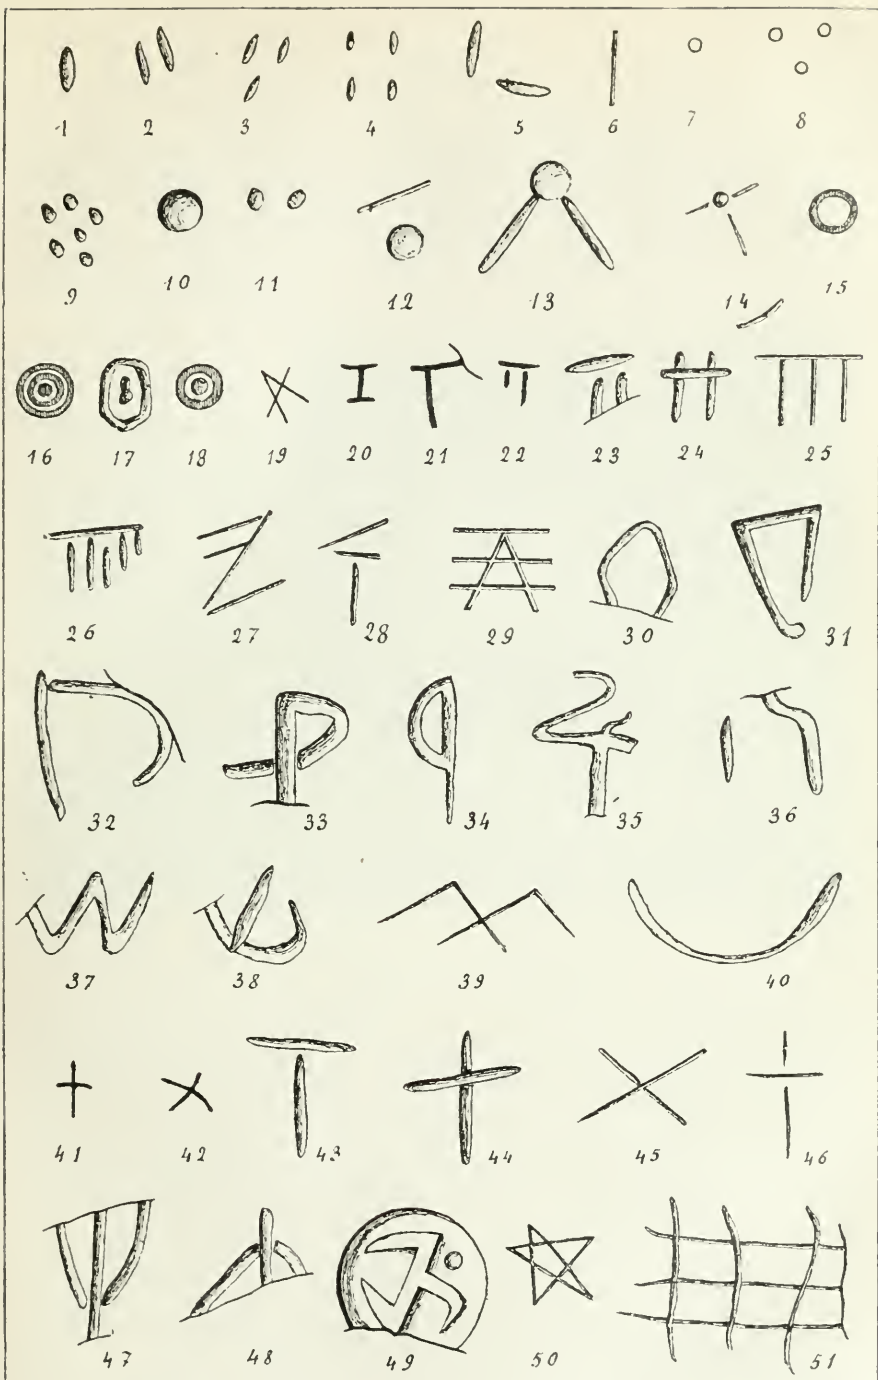 1 2 3 4 5 6 7 8
9 10 11 12 13 14 15
16 17 18 19 20 21 22 23 24 25
26 27 28 29 30 31
32 33 34 35 36
37 38 39 40
41 42 43 44 45 46
47 48 49 50 51